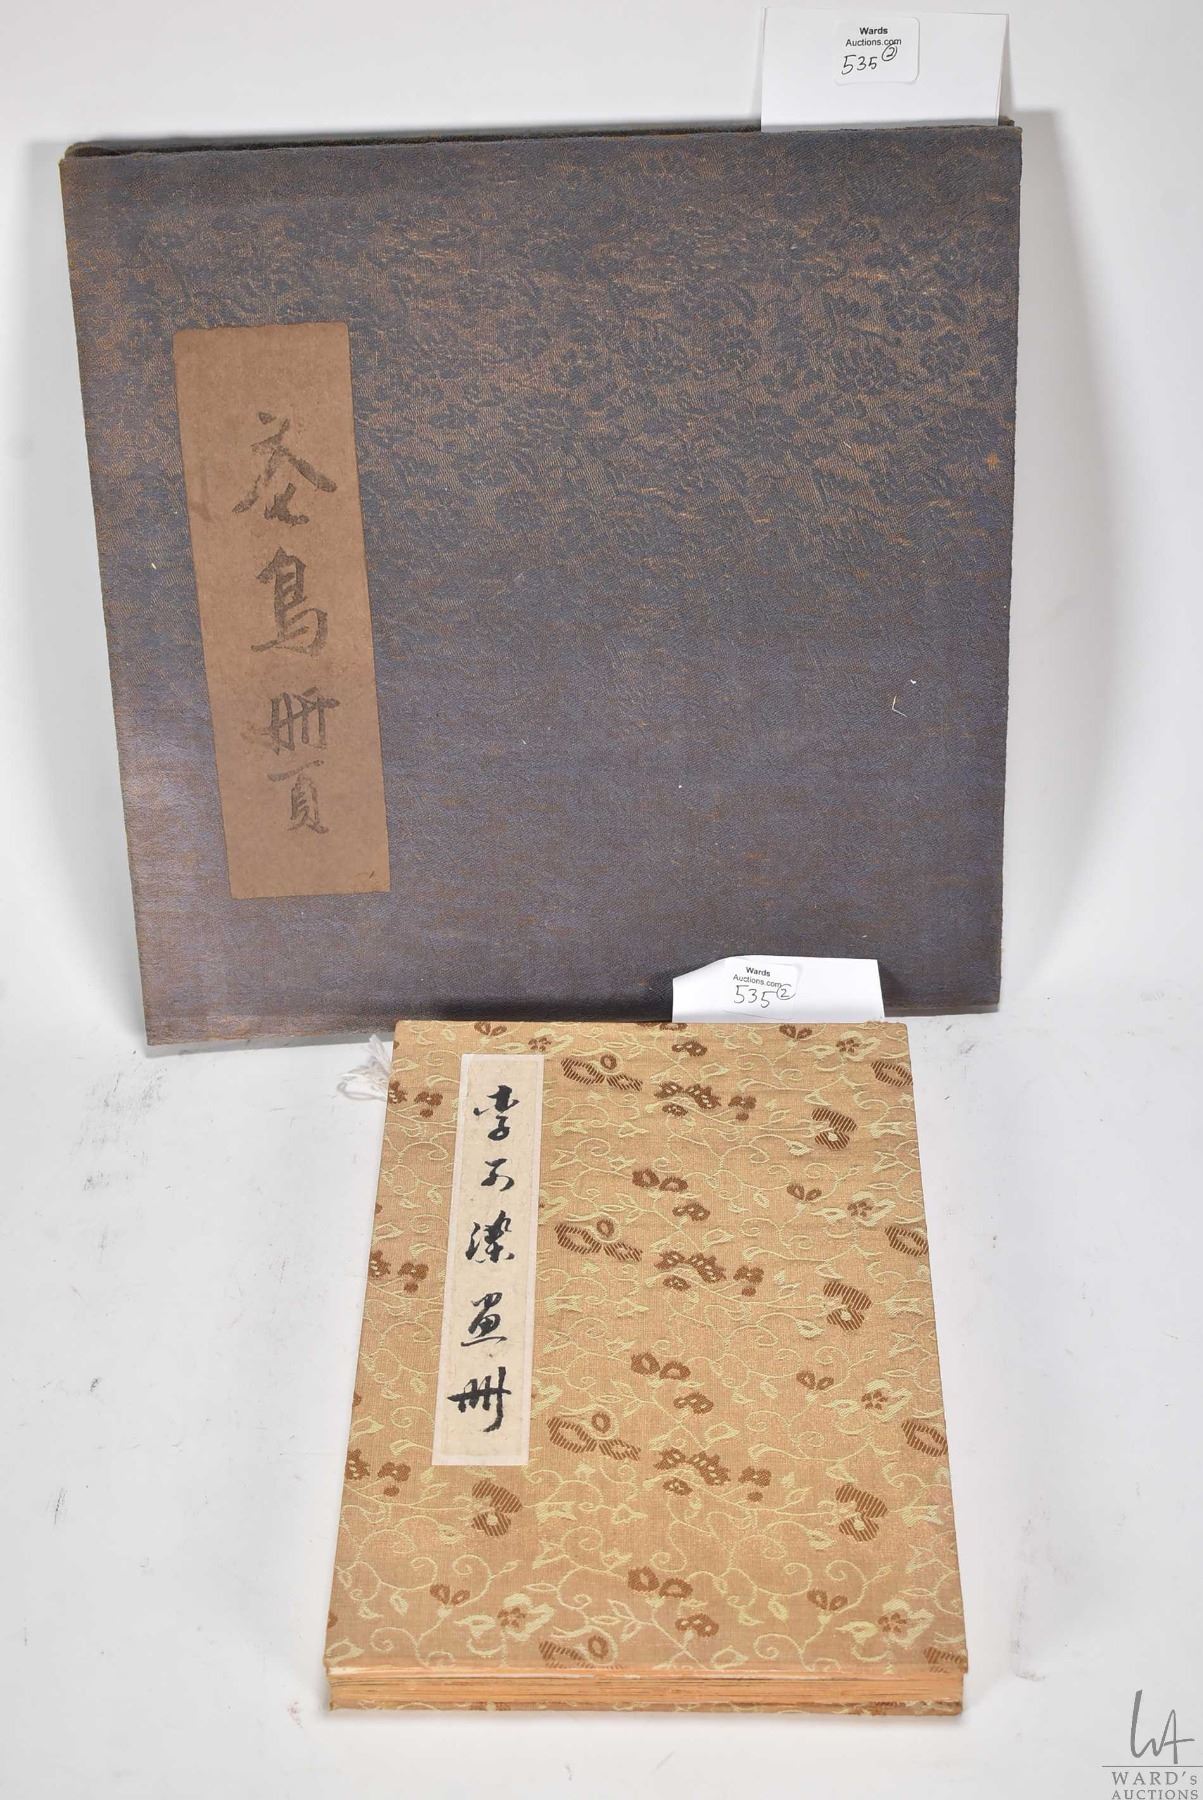 Wards
Auctions.com
535 ②
花鳥冊頁
Wards
Auctions.com
535 ②
李可染畫冊
WARD's
AUCTIONS